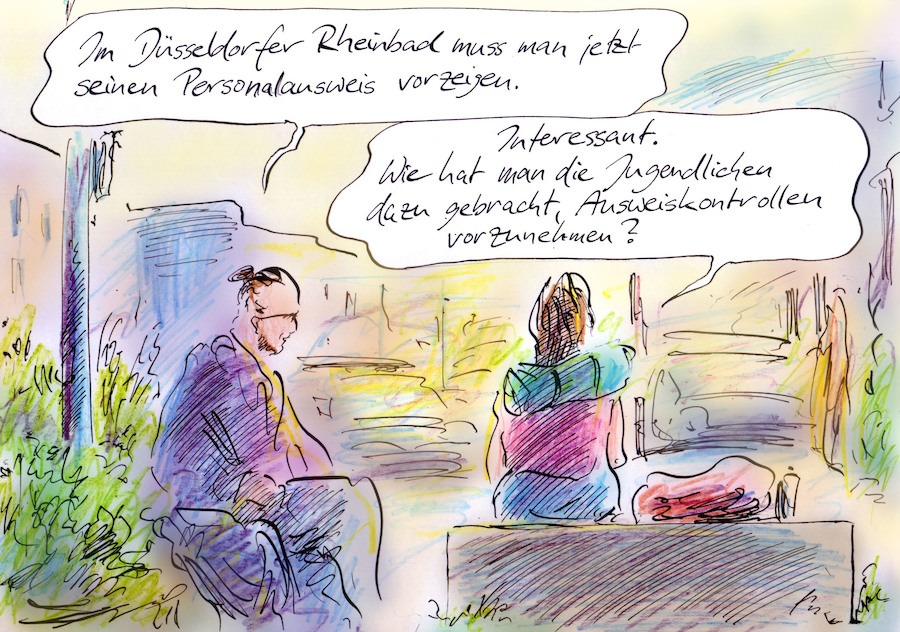 Im Düsseldorfer Rheinbad muss man jetzt
seinen Personalausweis vorzeigen.
Interessant.
Wie hat man die Jugendlichen
dazu gebracht, Ausweiskontrollen
vorzunehmen?